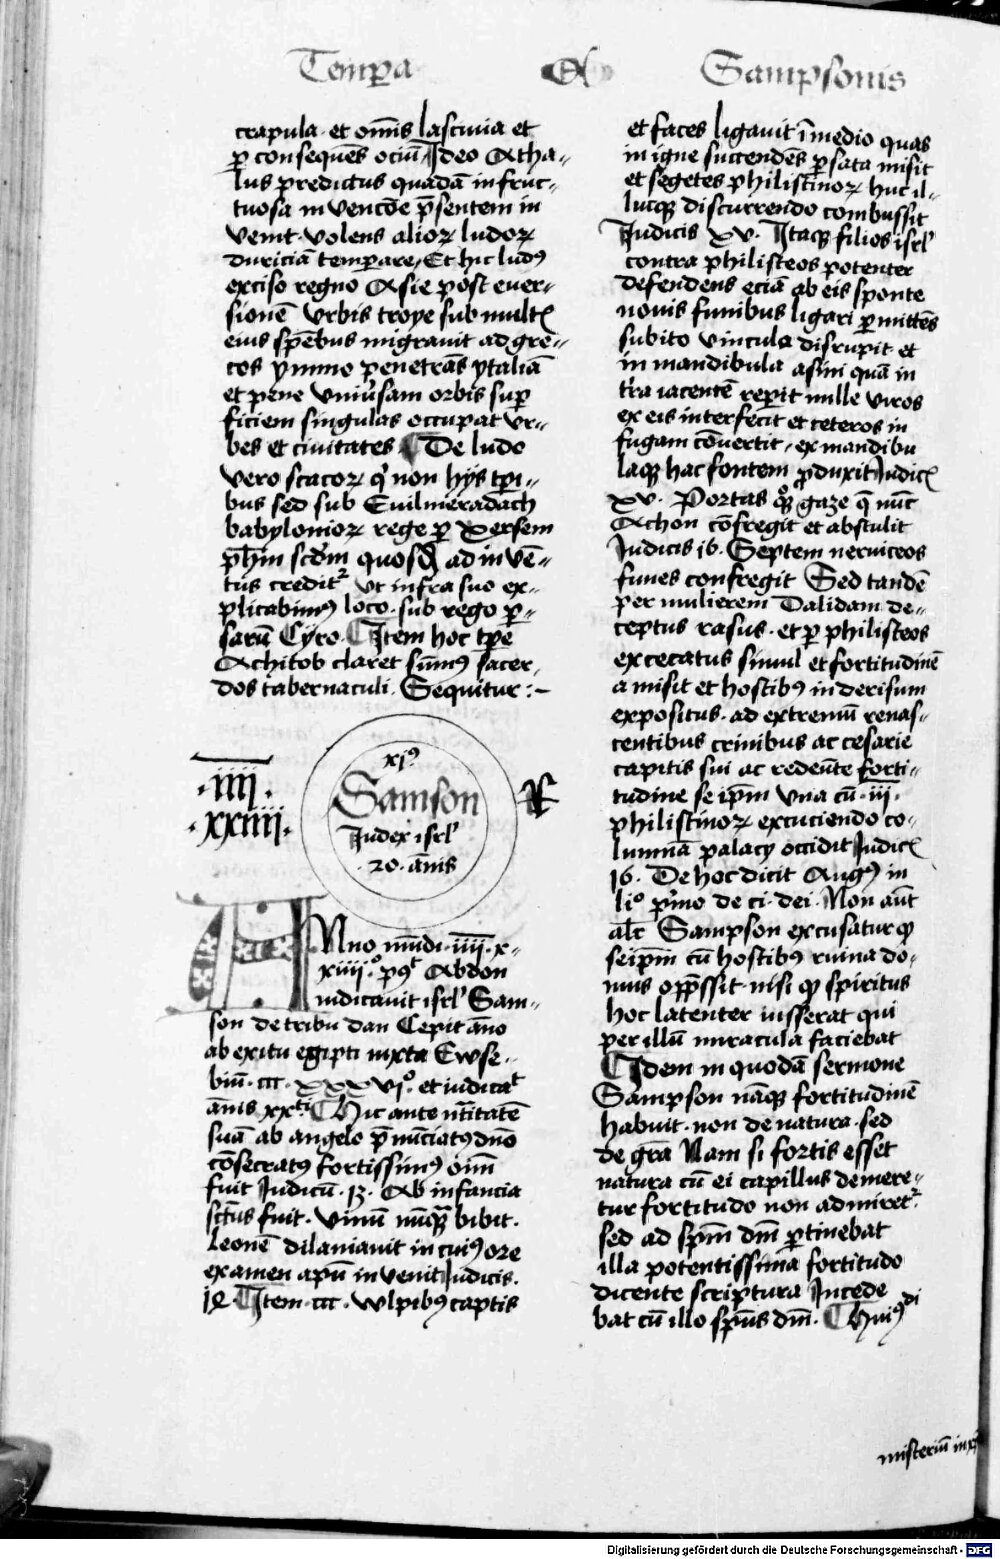 Tempera Et Sampsonis
crapula· et om̄is lasciuia et
ꝑ conseques̄ ociū· Ideo Atha-
lus predictus quadā infruc-
tuosa in vencōe p̄sentem in
venit· volens alioꝝ ludoꝝ
duriciā temperare· Et hic ludꝰ
exciso regno Asie post euer-
sionē vrbis troye sub mult
eius speb̄us migrauit ad gre-
cos ymmo penetrās ytaliā
et pene vniu̇sam orbis suꝑ
ficiem singulas occupat vr-
bes et ciuitates ¶ De ludo
vero scacoꝝ qͥ non hijs tꝑi-
bus sed sub Euilmeradach
babylonioꝝ rege ꝑ Xersem
ph̄m scd̄m quosdā ad inuē-
tus creditᷣ vt infra suo ex-
plicabimꝰ loco· sub rego ꝑ-
sarū Cyro· ¶ Item hoc tp̄e
Achitob claret sūmꝰ sacer-
dos tabernaculi· Sequitur :~
xjꝰ
·iiij·
Samson
·xxiiij·
Judex isrl̓
·20· ānis
Anno mūdi· iiij· x-
xiiij·º pꝰt Abdon
iudicauit isrl̓ Sam-
son de tribu dan Cepit āno
ab exitu egipti iuxta Ewse-
biū· ccc· xxxvjº· et iudicat
ānis xxti ¶ Hic ante nt̄itatē
suā ab angelo p̄nūciatꝰ dn̄o
cōsecratꝰ fortissimꝰ oīm
fuit Judicū· 13· Ab infancia
sct̄us fuit· vinū nūqꝫ bibit·
Leonē dilaniauit in cuiꝰ ore
examen apū inuenit Judicis·
14 ¶ Item· ccc· wlpibꝰ captis
et faces ligauit ī medio quas
in igne succendēs ꝑ sata misit
et segetes philistinoꝝ huc il-
lucqꝫ discurrendo combussit
Judicis xv· Itaqꝫ filios isrl̓
contra philisteos potenter
defendens eciā ab eis sponte
nouis funibus ligari ꝑmittēs
subito vincula disrupit et
in mandibula asini quā in
tr̄a iacentē reꝑit mille viros
ex eis interfecit et ceteros in
fugam cōuertit· ex mandibu
laqꝫ hac fontem ꝓduxit Judic
xv· Portas qͦqꝫ gaze q̄ nūc
Achon cōfregit et abstulit
Judicis 16· Septem neruiceos
funes confregit Sed tandē
per mulierem Dalidam de-
ceptus rasus· et ꝑ philisteos
excecatus simul et fortitudinē
amisit et hostibꝰ in derisum
expositus· ad extremū renas-
centibus crinibus ac cesarie
capitis sui ac redeūte forti-
tudine se ip̄m vna cū· iij·
philistinoꝝ excuciendo co-
lumnā palacij occidit Judic
16· De hoc dicit Augꝰ in
liº pͥmo de ci· dei· Non aūt
alr̄ Sampson excusatur qͦ
seip̄m cū hostibꝰ ruina do-
mus opp̄ssit· nisi qͦ spiritus
hoc latenter iusserat qui
per illū miracula faciebat
¶ Idem in quodā sermone
Sampson nāqꝫ fortitudinē
habuit· non de natura· sed
de gr̄a Nam si fortis esset
natura cū ei capillus demere-
tur fortitudo non admiretᷣ
sed ad spm̄ dm̄ ꝑtinebat
illa potentissima fortitudo
dicente scriptura Incede
bat cū illo spūs dm̄· ¶ Huiꝰ di
misteriū in
Digitalisierung gefördert durch die Deutsche Forschungsgemeinschaft - DFG